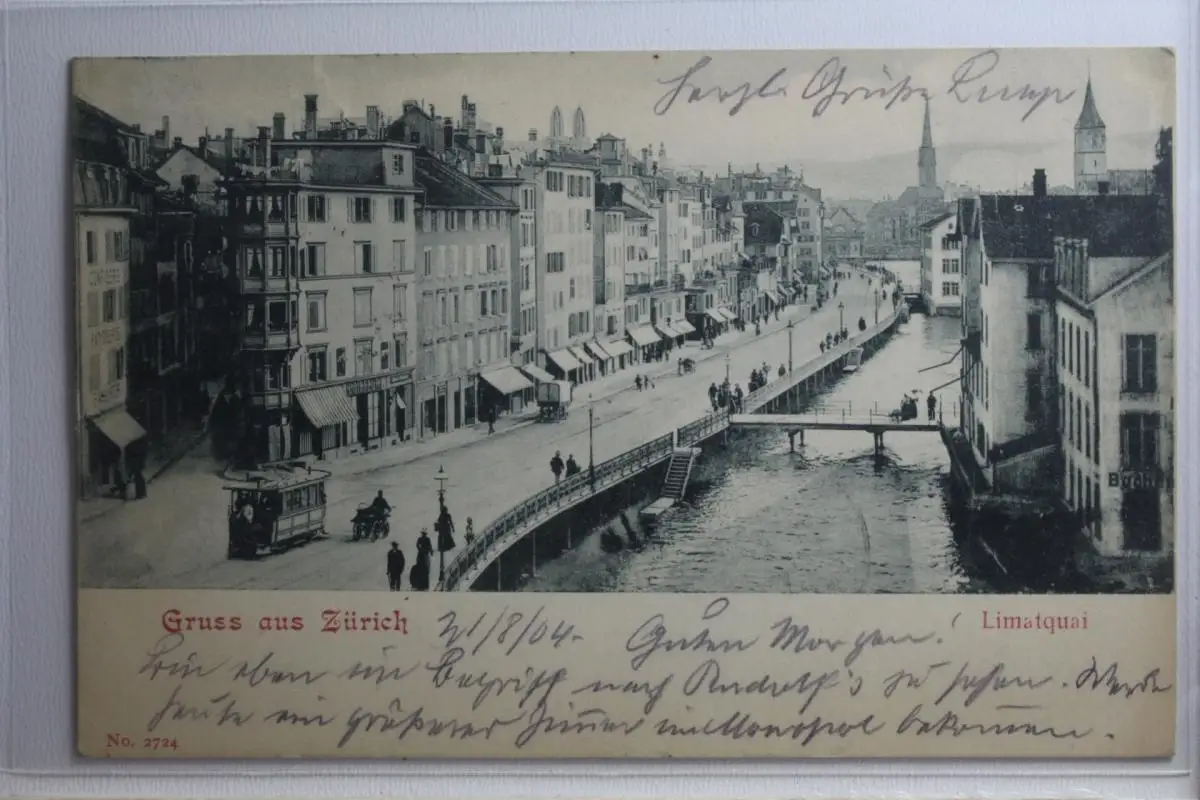 Herzl. Grüße
Gruss aus Zürich 21/8/04. Guten Morgen! Limatquai
Bin eben im Begriff nach Rudolf's zu sehen. Werde
heute ein größeres Zimmer im Monopol bekommen.
No. 2724